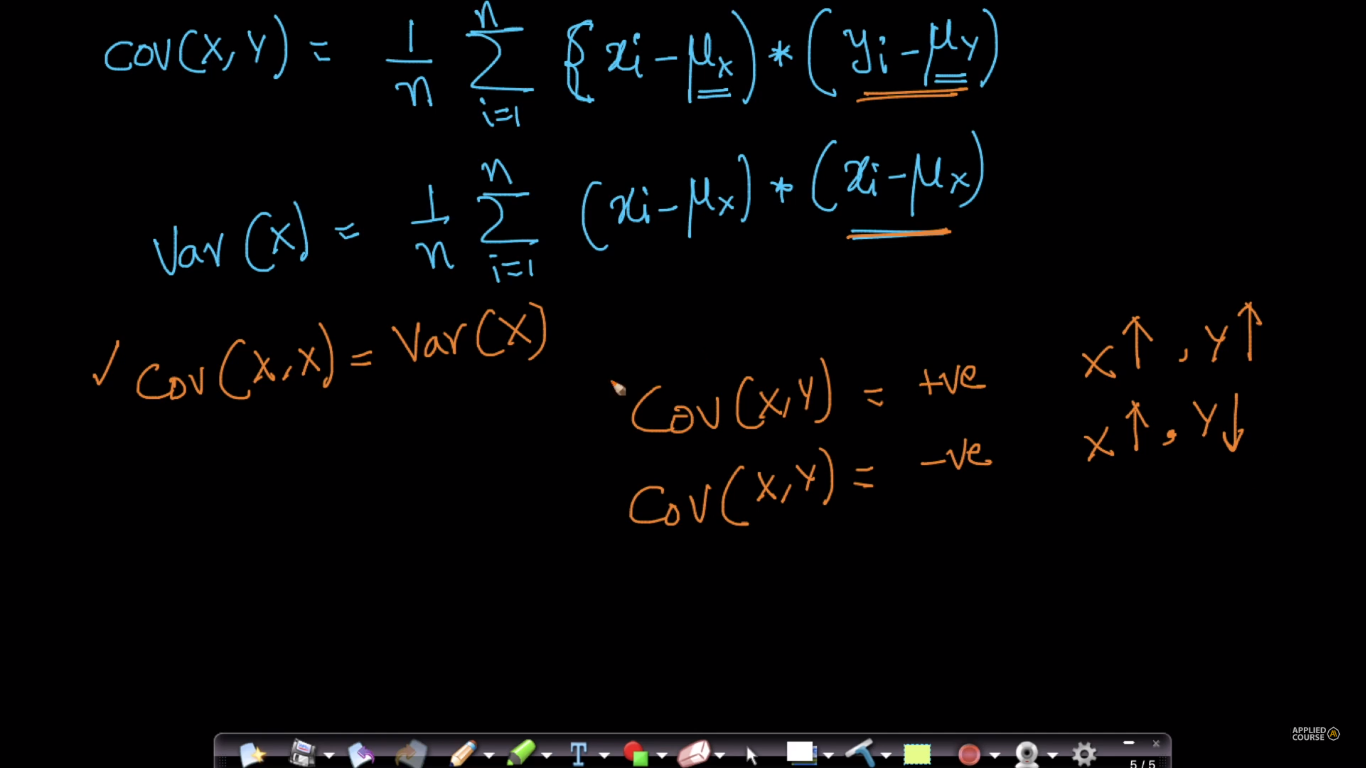 COV(X, Y) = 1/n n∑i=1 {xi - μx) * (yi - μY)
Var(X) = 1/n n∑i=1 (xi - μX) * (xi - μX)
✓ COV(X, X) = Var(X)
COV(X, Y) = +ve X↑, Y↑
COV(X, Y) = -ve X↑, Y↓
T
5 / 5
APPLIED
COURSE